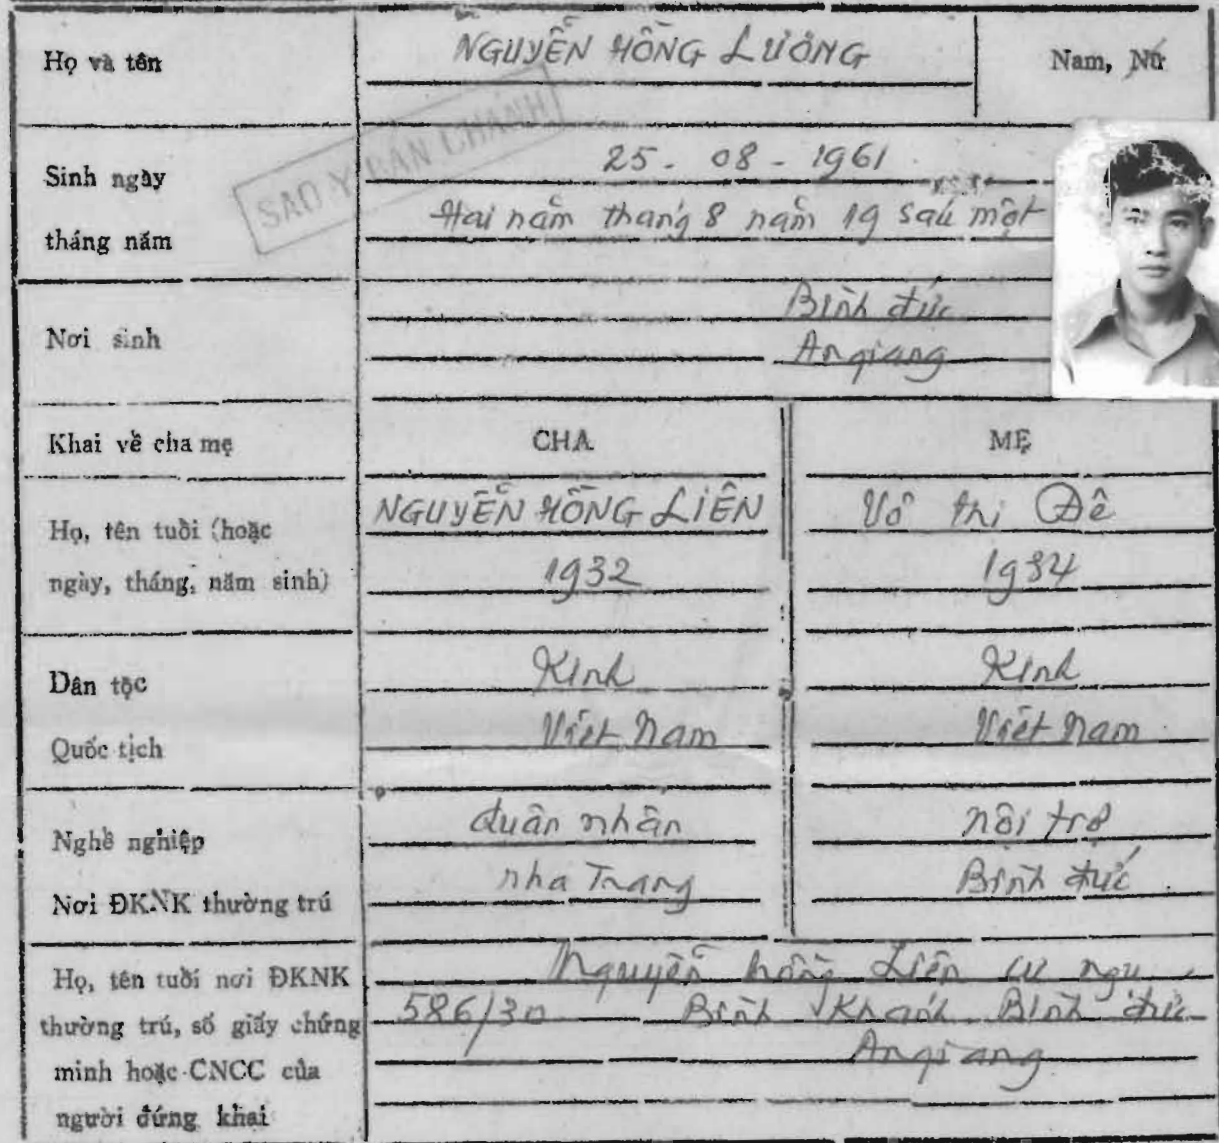 Họ và tên
NGUYỄN HỒNG LƯƠNG
Nam, Nữ
SAO Y BẢN CHÁNH
Sinh ngày
tháng năm
25 - 08 - 1961
Hai năm tháng 8 năm 19 sáu một
Nơi sinh
Bình đức
Angiang
Khai về cha mẹ
CHA
MẸ
Họ, tên tuổi (hoặc
ngày, tháng, năm sinh)
NGUYỄN HỒNG LIÊN
Võ thị Đê
1932
1934
Dân tộc
Kinh
Kinh
Quốc tịch
Việt Nam
Việt Nam
Nghề nghiệp
Quân nhân
nội trợ
Nơi ĐKNK thường trú
nha Trang
Bình đức
Họ, tên tuổi nơi ĐKNK
thường trú, số giấy chứng
minh hoặc CNCC của
người đứng khai
Nguyễn hồng Liên cư ngụ
586/30 Bình Khánh Bình đức
Angiang